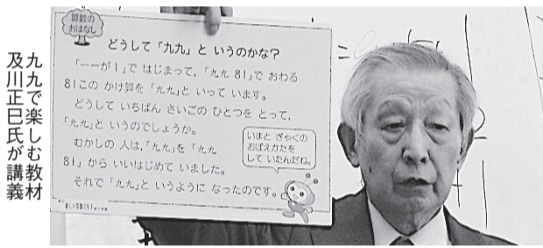 九九で楽しむ教材
及川正巳氏が講義
算数の
おはなし
どうして「九九」と いうのかな?
「一一が1」で はじまって,「九九 81」で おわる
81この かけ算を「九九」と いって います。
どうして いちばん さいごの ひとつを とって,
「九九」と いうのでしょうか。
むかしの 人は,「九九」を「九九
81」から いいはじめて いました。
それで「九九」と いうように なったのです。
いまと ぎゃくの
おぼえかたを
して いたんだね。